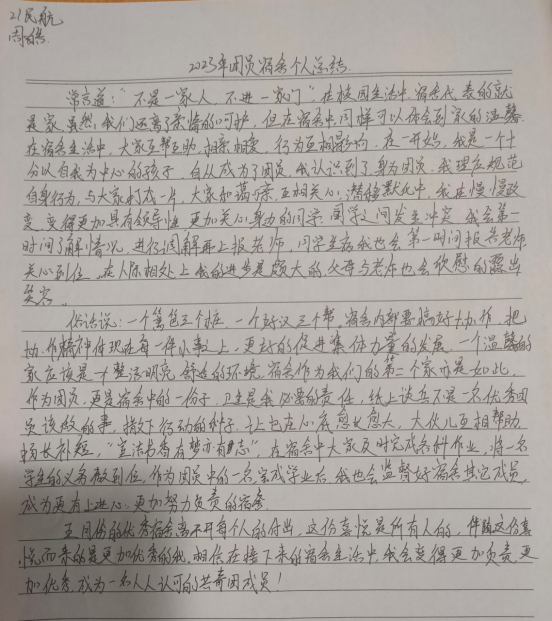 21民航
周皓
2023年团员宿舍个人总结
常言道："不是一家人,不进一家门",在校园生活中,宿舍代表的就
是家,虽然我们远离了亲情的呵护,但在宿舍中同样可以体会到家的温馨
在宿舍生活中,大家互帮互助,相亲相爱,行为互相影响,在一开始,我是一个十
分以自我为中心的孩子,自从成为了团员,我认识到了身为团员,我理应规范
自身行为,与大家打成一片,大家和蔼可亲,互相关心,潜移默化中,我在慢慢改
变,变得更加具有领导性,更加关心身边的同学,同学之间发生冲突,我会第一
时间了解情况,进行调解再上报老师,同学生病我也会第一时间报告老师
关心到位,在人际相处上我的进步是颇大的,父母与老师也会欣慰的露出
笑容。
俗话说:一个篱笆三个桩,一个好汉三个帮,宿舍内部要搞好协作,把
协作精神体现在每一件小事上,更好的促进集体力量的发展,一个温馨的
家应该是一个整洁明亮,舒适的环境,宿舍作为我们的第二个家亦是如此,
作为团员,更是宿舍中的一份子,卫生是我必要的责任,纸上谈兵不是一名优秀团
员该做的事,播下行动的种子,让它在心底愈长愈大,大伙儿互相帮助
扬长补短,"宣法书香有梦亦有志",在宿舍中大家及时完成各科作业,将一名
学生的义务做到位,作为团员中的一名,完成学业后,我也会监督好宿舍其它成员,
成为更有上进心,更加努力负责的宿舍
五月份的优秀宿舍离不开每个人的付出,这份喜悦是所有人的,伴随这份喜
悦而来的是更加优秀的我,相信在接下来的宿舍生活中,我会变得更加负责,更
加优秀,成为一名人人认可的共青团成员!